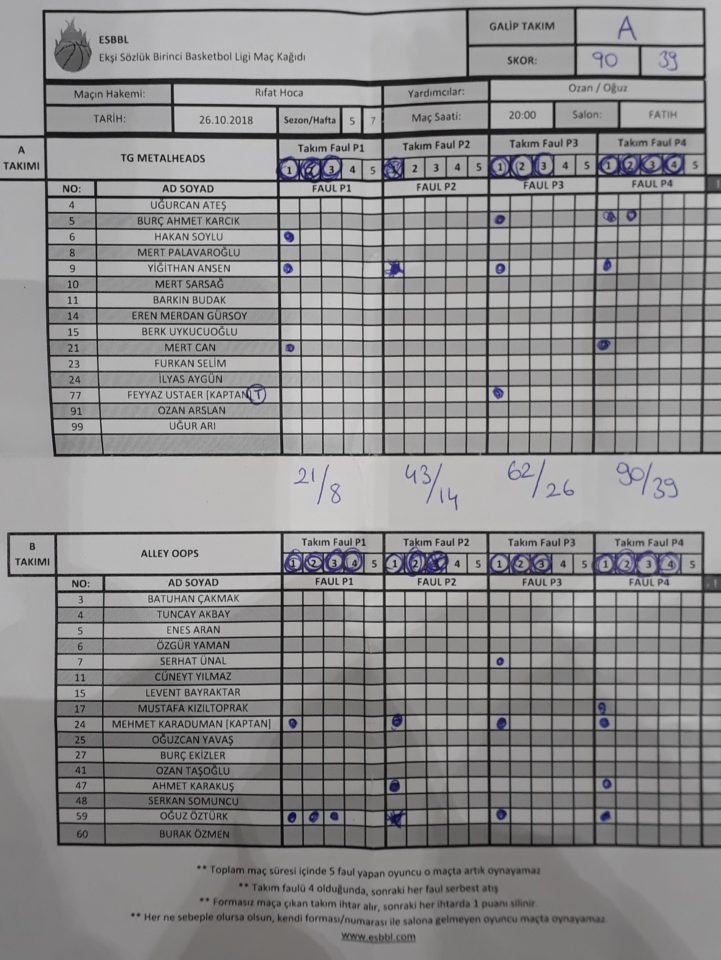 ESBBL
Ekşi Sözlük Birinci Basketbol Ligi Maç Kağıdı
GALİP TAKIM A
SKOR: 90 39
Maçın Hakemi: Rıfat Hoca Yardımcılar: Ozan / Oğuz
TARİH: 26.10.2018 Sezon/Hafta 5 7 Maç Saati: 20:00 Salon: FATIH
A TAKIMI TG METALHEADS Takım Faul P1 Takım Faul P2 Takım Faul P3 Takım Faul P4
1 2 3 4 5 1 2 3 4 5 1 2 3 4 5 1 2 3 4 5
NO: AD SOYAD FAUL P1 FAUL P2 FAUL P3 FAUL P4
4 UĞURCAN ATEŞ
5 BURÇ AHMET KARCIK
6 HAKAN SOYLU
8 MERT PALAVAROĞLU
9 YİĞİTHAN ANSEN
10 MERT SARSAĞ
11 BARKIN BUDAK
14 EREN MERDAN GÜRSOY
15 BERK UYKUCUOĞLU
21 MERT CAN
23 FURKAN SELİM
24 İLYAS AYGÜN
77 FEYYAZ USTAER [KAPTAN] T
91 OZAN ARSLAN
99 UĞUR ARI
21/8 43/14 62/26 90/39
B TAKIMI ALLEY OOPS Takım Faul P1 Takım Faul P2 Takım Faul P3 Takım Faul P4
1 2 3 4 5 1 2 3 4 5 1 2 3 4 5 1 2 3 4 5
NO: AD SOYAD FAUL P1 FAUL P2 FAUL P3 FAUL P4
3 BATUHAN ÇAKMAK
4 TUNCAY AKBAY
5 ENES ARAN
6 ÖZGÜR YAMAN
7 SERHAT ÜNAL
11 CÜNEYT YILMAZ
15 LEVENT BAYRAKTAR
17 MUSTAFA KIZILTOPRAK
24 MEHMET KARADUMAN [KAPTAN]
25 OĞUZCAN YAVAŞ
27 BURÇ EKİZLER
41 OZAN TAŞOĞLU
47 AHMET KARAKUŞ
48 SERKAN SOMUNCU
59 OĞUZ ÖZTÜRK
60 BURAK ÖZMEN
** Toplam maç süresi içinde 5 faul yapan oyuncu o maçta artık oynayamaz
** Takım faulü 4 olduğunda, sonraki her faul serbest atış
** Formasız maça çıkan takım ihtar alır, sonraki her ihtarda 1 puanı silinir.
** Her ne sebeple olursa olsun, kendi forması/numarası ile salona gelmeyen oyuncu maçta oynayamaz
www.esbbl.com